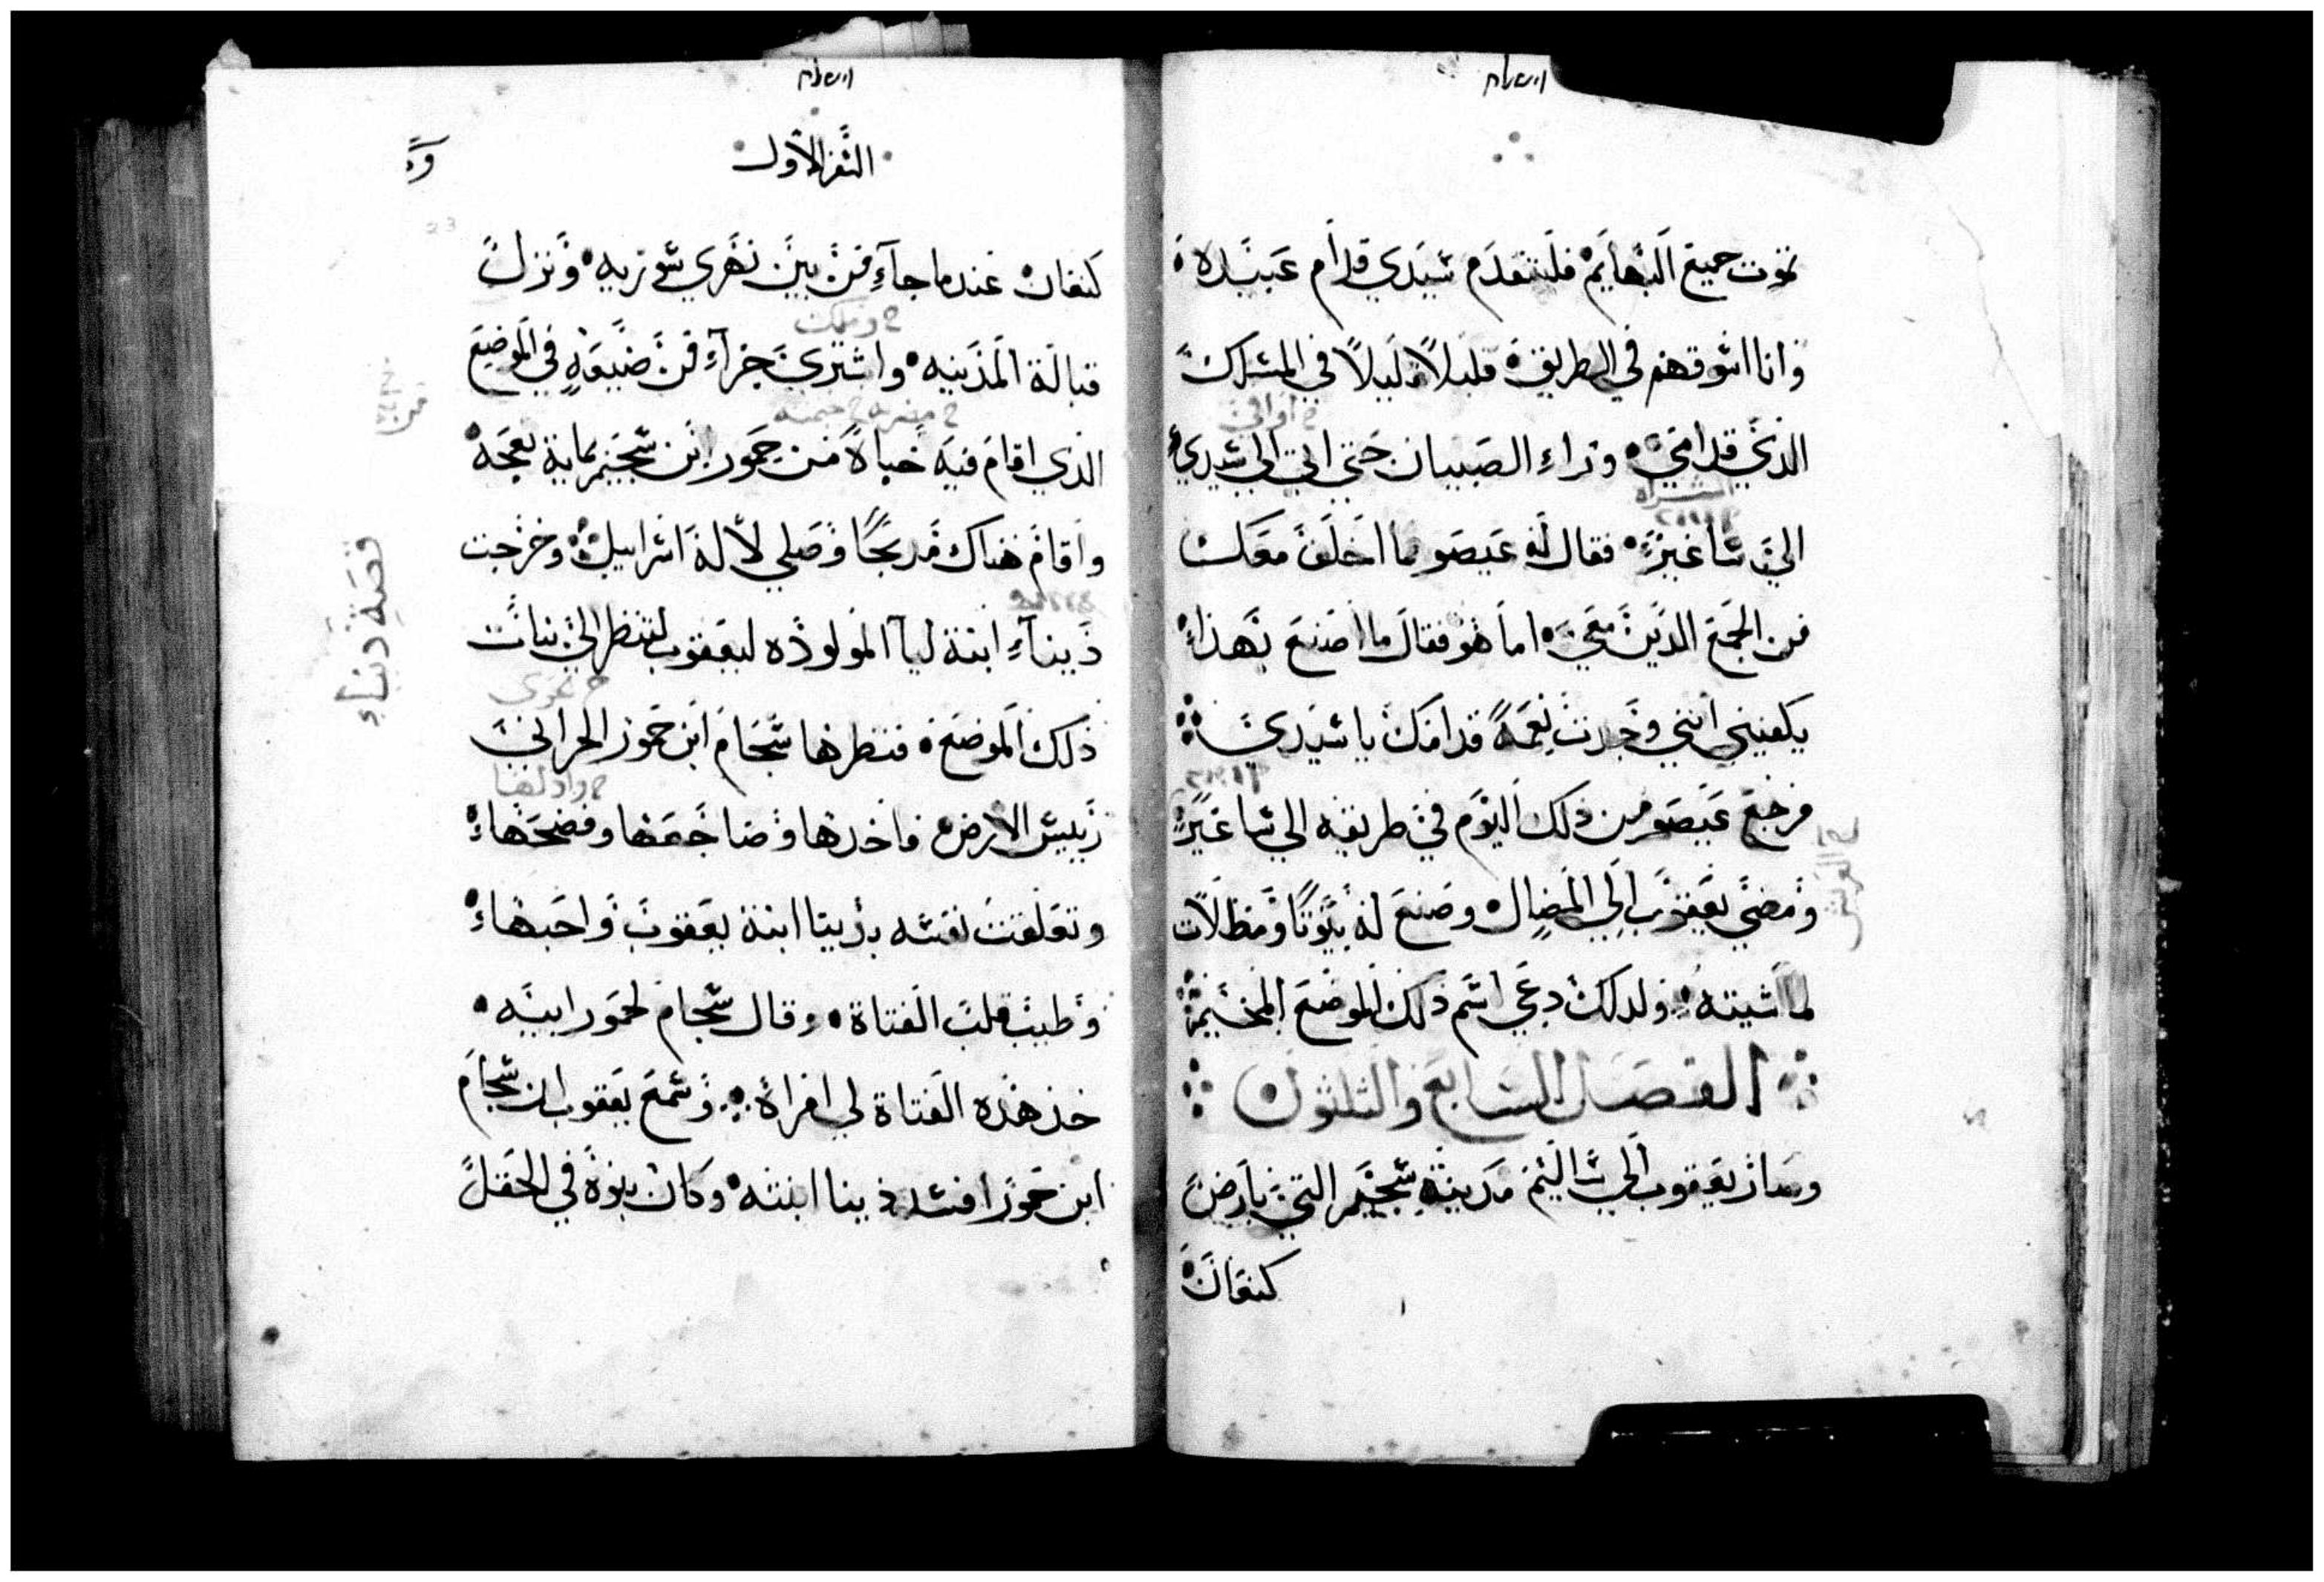 تموت جميع البهايم فليتقدم سيدي قدام عبيده
وانا اسوقهم في الطريق قليلاً قليلاً في المسلك
الذي قدامي وراء الصبيان حتي اتي الي سيدي
الي ساعير فقال له عيصو ما اخلف معك
من الجمع الذين معي اما هو فقال ما اصنع بهذا
يكفيني انني وجدت نعمةً قدامك يا سيدي
فرجع عيصو من ذلك اليوم في طريقه الي ساعير
ومضي يعقوب الي المضال وصنع له بيوتاً ومظلات
لماشيته ولدلك دعي اسم ذلك الموضع المخيمة
الفصل السابع والثلثون
وسار يعقوب الي ساليم مدينة سجيم التي بارض
كنعان
السفر الاول
كنعان عندما جآء من بين نهري سوريه ونزل
قبالة المدينه واشتري جزآء من ضيعةٍ في الموضع
الذي اقام فيه خباهً من حمور ابن سجيم بماية نعجه
واقام هناك مدبحاً وصلي لاله اسراييل وخرجت
دينآء ابنة ليآ المولوده ليعقوب لتنظر الي بنات
ذلك الموضع فنظرها سجام ابن حمور الحراني
رييس الارض فاخدها وضاجعها وفضحهاء
وتعلقت نفسه بدينا ابنة يعقوب واحبهاء
وطيب قلب الفتاة وقال سجام لحمور ابيه
خذ هذه الفتاة لي امراة وسمع يعقوب ان سجام
ابن حمور افسد دينا ابنته وكان بنوه في الحقل
قصة دبناء